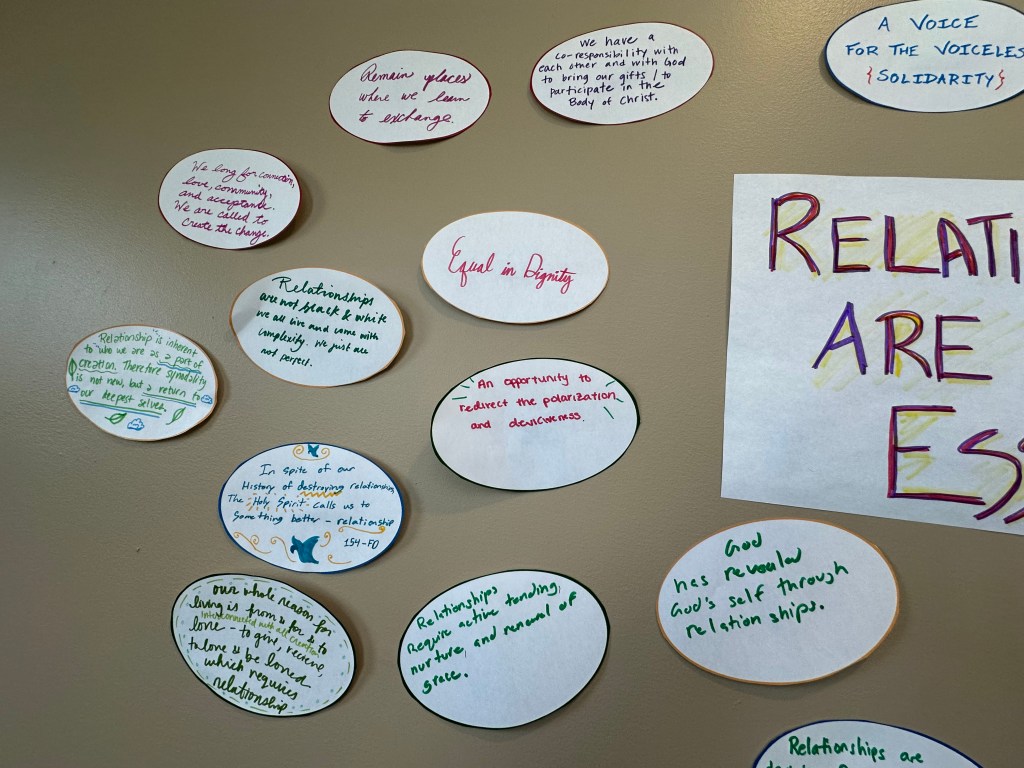 Remain places
where we learn
to exchange.
We have a
co-responsibility with
each other and with God
to bring our gifts / to
participate in the
Body of Christ.
A VOICE
FOR THE VOICELES
{SOLIDARITY}
We long for connection,
love, community,
and acceptance.
We are called to
create the change.
Equal in Dignity
RELATI
ARE
ESS
Relationships
are not black & white
we all live and come with
complexity. We just are
not perfect.
Relationship is inherent
to who we are as a part of
creation. Therefore synodality
is not new, but a return to
our deepest selves.
An opportunity to
redirect the polarization
and deviciveness.
In spite of our
History of destroying relationships
The Holy Spirit calls us to
something better - relationship
154-FD
our whole reason for
living is from & for & to
interconnected with all creation
love - to give, receive,
to love & be loved
which requires
relationship
Relationships
require active tending,
nurture, and renewal of
grace.
God
has revealed
God's self through
relationships.
Relationships are